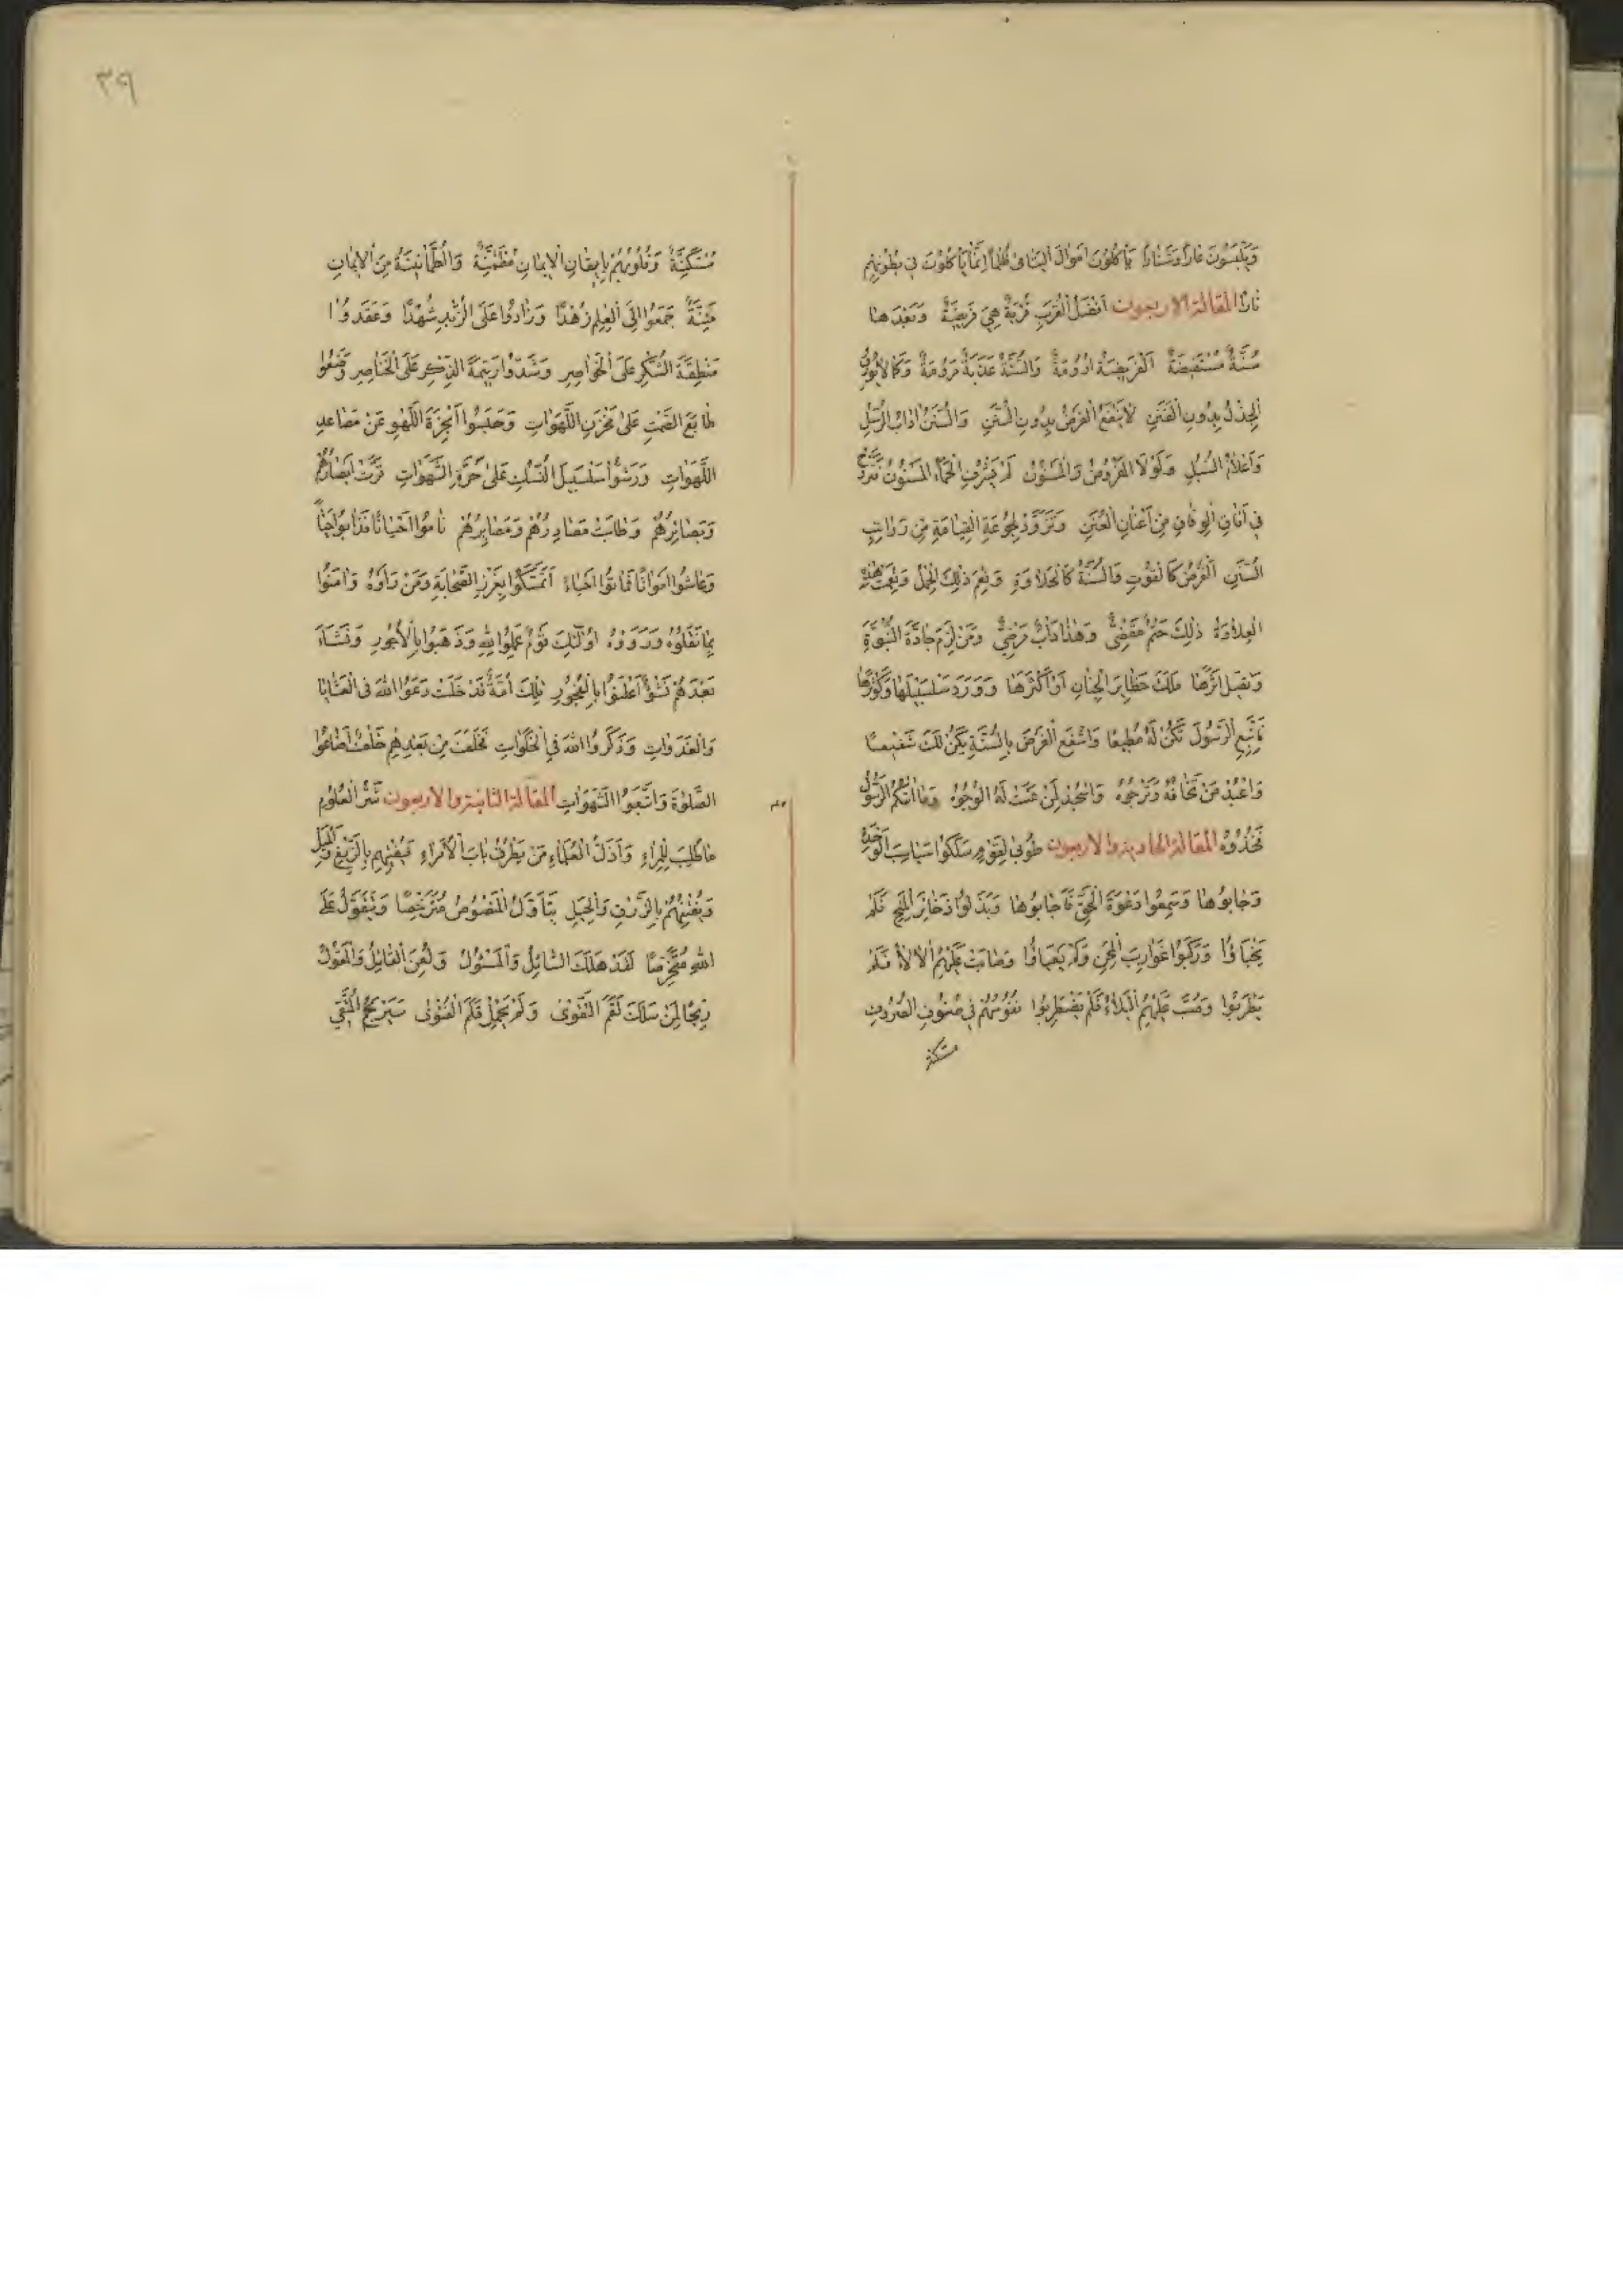 وَيَلْبَسُونَ عَارًا وَشَنَارًا يَأْكُلُونَ اَمْوَالَ الْيَتَامٰى ظُلْمًا اِنَّمَا يَأْكُلُونَ فِي بُطُونِهِمْ
نَارًا المقالة الاربعون اَفْضَلُ الْقُرَبِ قُرْبَةٌ هِيَ فَرِيضَةٌ وَبَعْدَهَا
سُنَّةٌ مُسْتَفِيضَةٌ اَلْفَرِيضَةُ اَرُومَةٌ وَالسُّنَّةُ عَذَبَةٌ مَرُومَةٌ وَكَمَا لَا
الْجِذْلُ بِدُونِ الْفَنَنِ لَا يَنْفَعُ الْفَرْضُ بِدُونِ السُّنَنِ وَالسُّنَنُ اٰدَابُ الرُّسُلِ
وَاَعْلَامُ السُّبُلِ وَلَوْلَا الْمَفْرُوضُ وَالْمَسْنُونُ لَمْ يَشْرُفِ الْحَمَأُ الْمَسْنُونُ
فِي اٰفَاقِ مِنْ اَعْنَانِ الْعُنَنِ وَتَزَوَّدْ لِجُوعَةِ الْقِيَامَةِ مِنْ رَوَاتِبِ
السُّنَنِ اَلْفَرْضُ كَالْقُوتِ وَالسُّنَّةُ كَالْحَلَاوَةِ وَنِعْمَ ذٰلِكَ الْحِمْلُ وَنِعْمَتْ هٰذِهِ
الْعِلَاوَةُ ذٰلِكَ حَتْمٌ مَقْضِيٌّ وَهٰذَا دَأْبٌ مَرْضِيٌّ وَمَنْ لَزِمَ جَادَّةَ النُّبُوَّةِ
اَثَرَهَا مَلَكَ حَظَايِرَ الْجِنَانِ اَوْ اَكْثَرَهَا وَوَرَدَ سَلْسَبِيلَهَا وَكَوْثَرَهَا
فَاتَّبِعِ الرَّسُولَ تَكُنْ لَهُ مُطِيعًا وَاشْفَعِ الْفَرْضَ بِالسُّنَّةِ يَكُنْ لَكَ شَفِيعًا
وَاعْبُدْ مَنْ تَخَافُهُ وَتَرْجُوهُ وَاسْجُدْ لِمَنْ عَنَتْ لَهُ الْوُجُوهُ وَمَا اٰتٰيكُمُ الرَّسُولُ
فَخُذُوهُ المقالة الحادية والاربعون طُوبٰى لِقَوْمٍ سَلَكُوا سَبَاسِبَ
وَجَابُوهَا وَسَمِعُوا دَعْوَةَ الْحَقِّ فَاَجَابُوهَا وَبَذَلُوا ذَخَائِرَ الْمُهَجِ فَلَمْ
وَرَكِبُوا غَوَارِبَ الْمِحَنِ وَلَمْ عَلَيْهِمُ الْاٰلَاءُ فَلَمْ
يَطْرَبُوا وَصُبَّ عَلَيْهِمُ الْبَلَاءُ فَلَمْ يَضْطَرِبُوا نُفُوسُهُمْ فِي صُنُوفِ الصُّرُوفِ
٣٩
مُسْتَكِنَّةٌ وَقُلُوبُهُمْ بِاِيقَانِ الْاِيمَانِ مُطْمَئِنَّةٌ وَالطُّمَأْنِينَةُ مِنَ الْاِيمَانِ
مَئِنَّةٌ جَمَعُوا اِلَى الْعِلْمِ زُهْدًا وَزَادُوا عَلَى الزُّبْدِ شُهْدًا وَعَقَدُوا
مِنْطَقَةَ الشُّكْرِ عَلَى الْخَوَاصِرِ وَشَدُّوا رَتِيمَةَ الذِّكْرِ عَلَى الْخَنَاصِرِ وَضَعُوا
طَابَعَ الصَّمْتِ عَلٰى مَخْزَنِ اللَّهَوَاتِ وَحَبَسُوا اَبْخِرَةَ اللَّهْوِ عَنْ مَصَاعِدِ
اللَّهَوَاتِ وَرَشُّوا سَلْسَبِيلَ النُّسْكِ عَلٰى حُرَقِ الشَّهَوَاتِ قَرَّتْ اَبْصَارُهُمْ
وَبَصَائِرُهُمْ وَطَابَتْ مَصَادِرُهُمْ وَمَصَايِرُهُمْ نَامُوا اَحْيَانًا
وَعَاشُوا اَمْوَاتًا فَمَاتُوا اَحْيَاءً اَتَمَسَّكُوا بِغَرْزِ الصَّحَابَةِ وَمَنْ رَاَوْهُ وَاٰمَنُوا
بِمَا نَقَلُوهُ وَرَوَوْهُ اُولٰئِكَ قَوْمٌ عَمِلُوا لِلّٰهِ وَذَهَبُوا بِالْاُجُورِ وَنَشَأَ
بَعْدَهُمْ نَشْؤٌ اَعْلَنُوا بِالْفُجُورِ تِلْكَ اُمَّةٌ قَدْ خَلَتْ دَعَوُا اللّٰهَ فِي الْعَشَايَا
وَالْغَدَوَاتِ وَذَكَرُوا اللّٰهَ فِي الْخَلَوَاتِ فَخَلَفَ مِنْ بَعْدِهِمْ خَلْفٌ اَضَاعُوا
الصَّلٰوةَ وَاتَّبَعُوا الشَّهَوَاتِ المقالة الثانية والاربعون شَرُّ الْعُلُومِ
مَا طُلِبَ لِلْمِرَاءِ وَاَذَلُّ الْعُلَمَاءِ مَنْ يَطْرُقُ بَابَ الْاُمَرَاءِ بِالزَّيْغِ وَالْمَيْلِ
وَيُفْتِيهُمْ وَالْحِيَلِ يَتَأَوَّلُ الْمَنْصُوصَ مُتَرَخِّصًا وَيَتَقَوَّلُ عَلَى
اللّٰهِ مُتَخَرِّصًا لَقَدْ هَلَكَ السَّائِلُ وَالْمَسْئُولُ وَلُعِنَ الْقَائِلُ وَالْمَقُولُ
لِمَنْ سَلَكَ لَقَمَ التَّقْوٰى وَلَمْ يَحْمِلْ قَلَمَ الْفَتْوٰى سَيَرْبَحُ الْمُتَّقِي